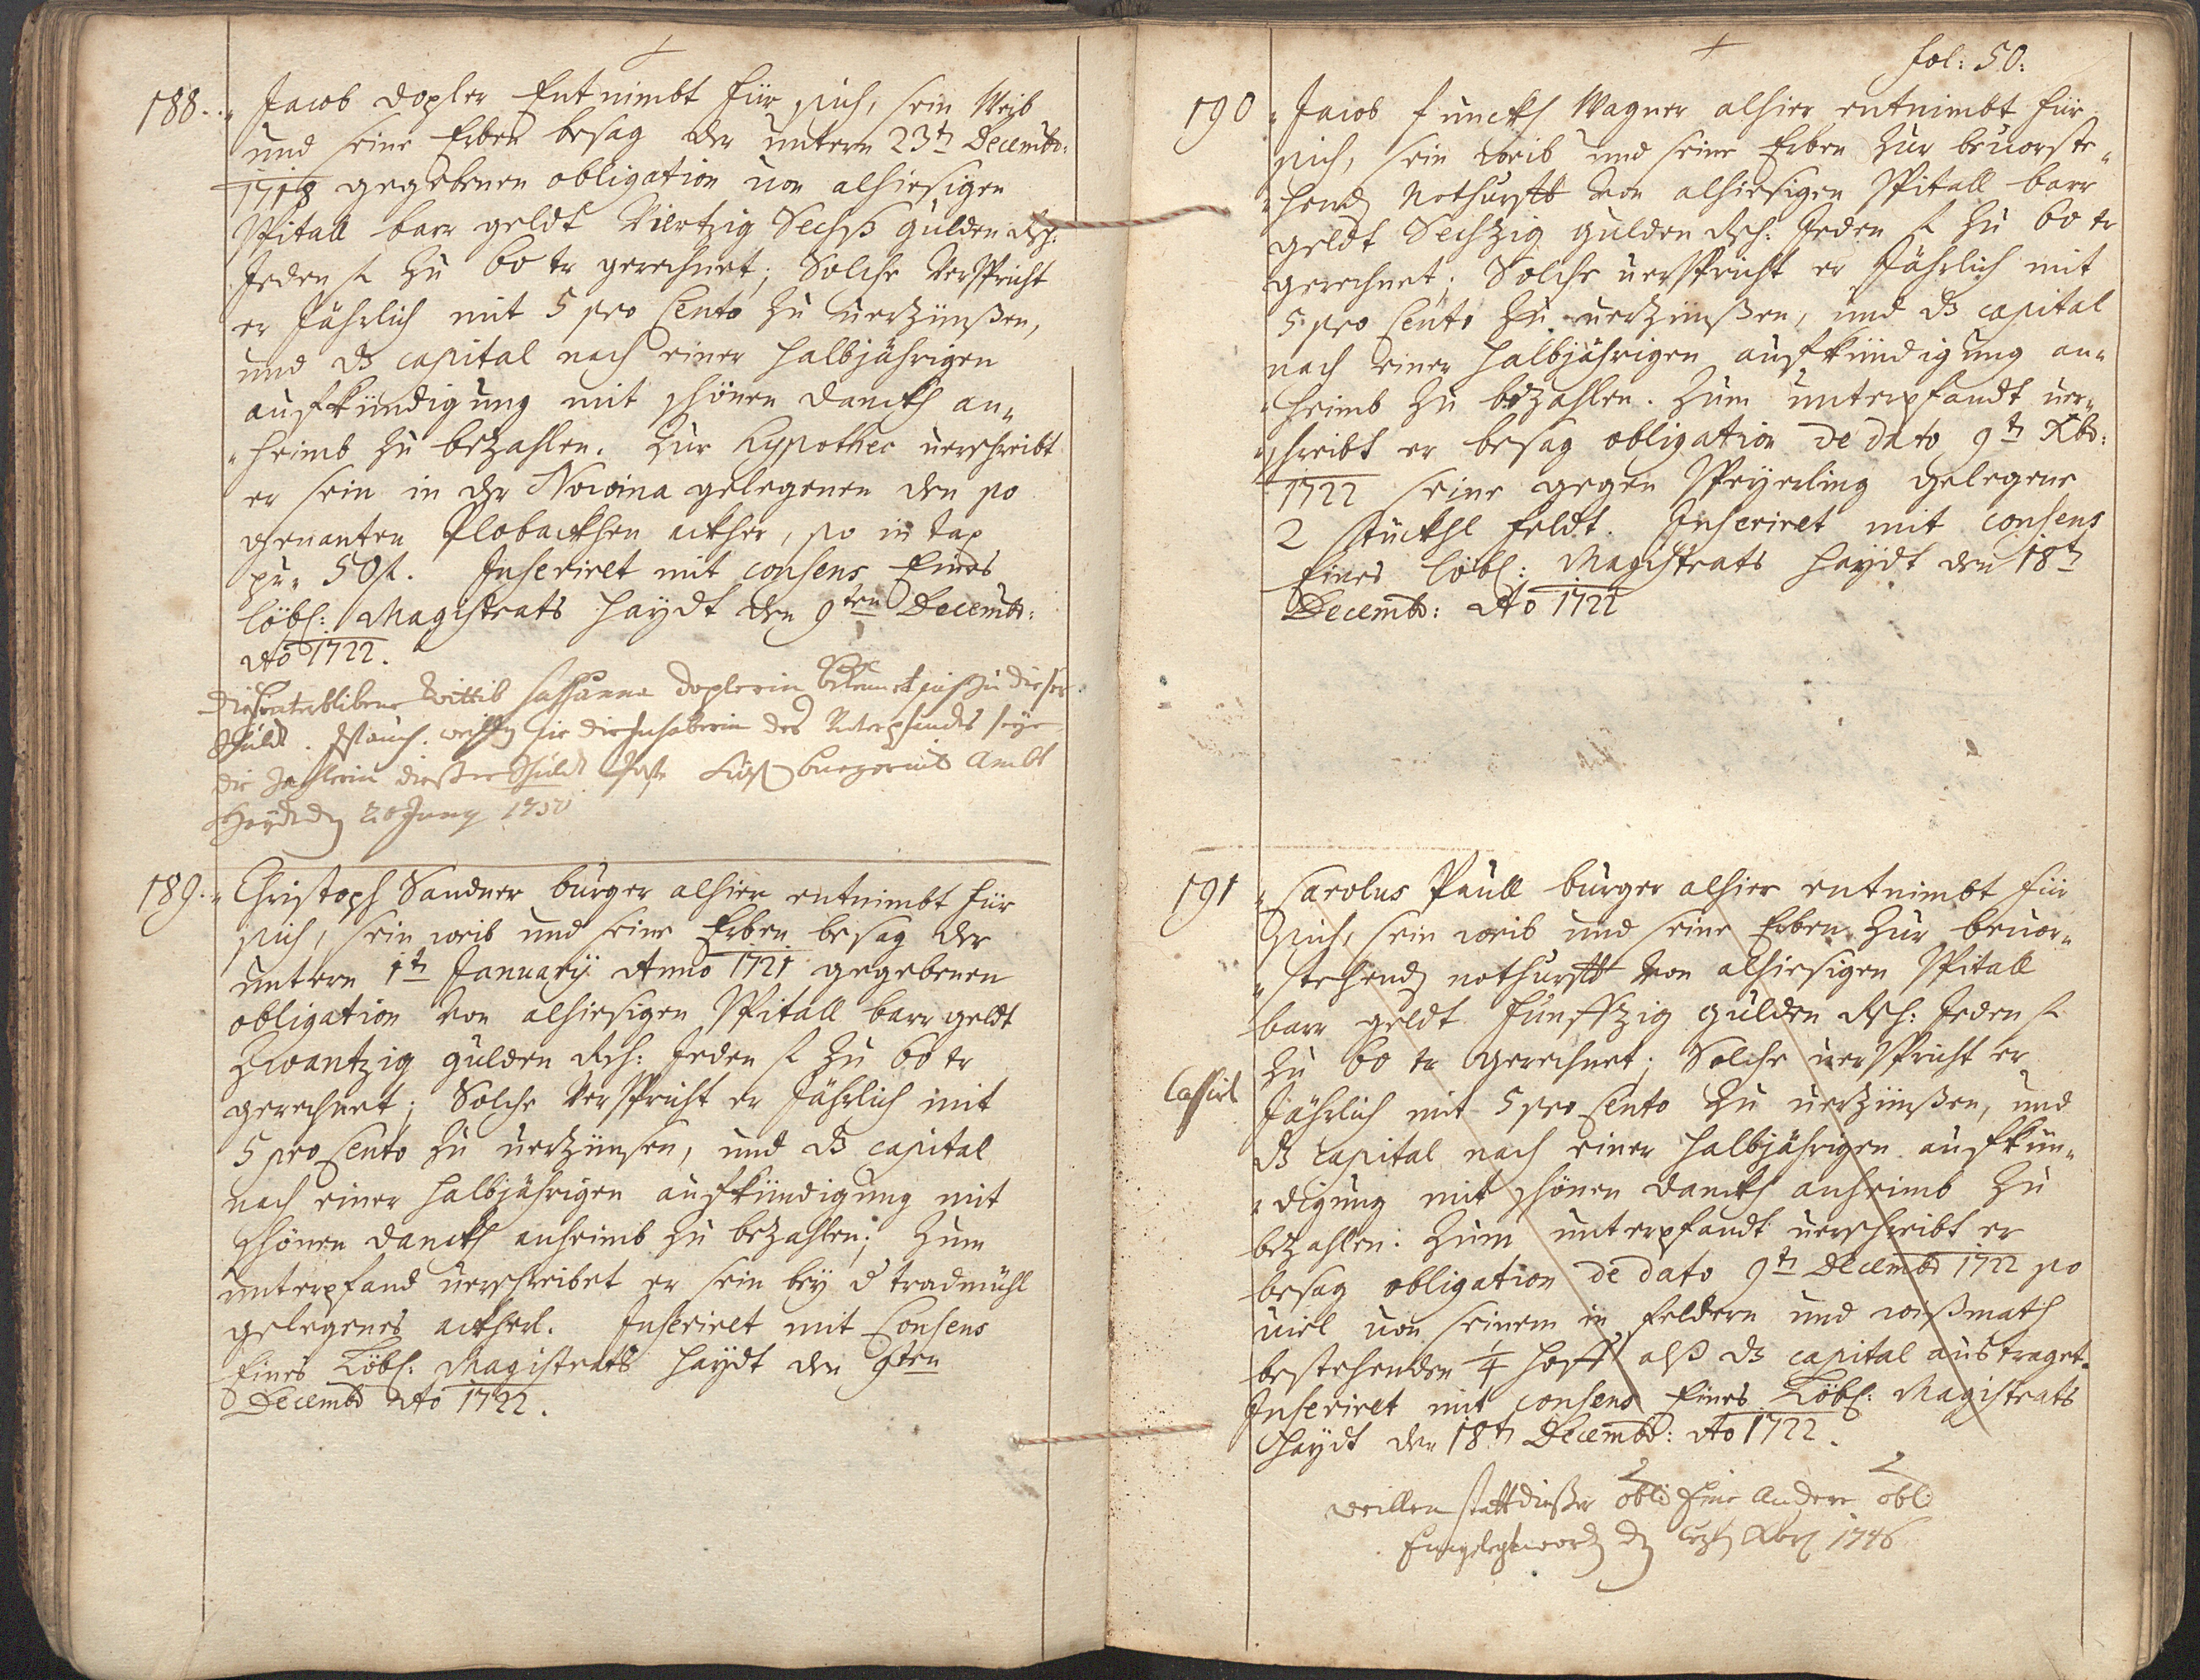 188. Jacob Dopler Entnimbt für sich, sein Weib
und seine Erben besag der untern 23t Decembr:
1718 gegebenen obligation von alhiesigen
Spitall barr geldt Viertzig Sechß gulden Rh:
Jeden fl zu 60 xr gerechnet; Solche Verspricht
er Jährlich mit 5 pro Cento zu verzünßen,
und dz capital nach einer halbjährigen
aufkündigung mit schönen danckh an„
„heimb zu bezahlen. Zur Hypothec verschreibt
er sein in der Nowina gelegenen den so
genanten Plobackhen ackher, so in tax
pr. 50 fl. Inserirt mit consens Eines
löbl: Magistrats Haydt den 9ten Decembr:
Ao 1722.
Die hinterblibene Wittib Sussanna Doplerin bekennet sich zu dieser
Schuldt. die Inhaberin des Unterpfandts seye
die Zahlerin dießer Schuldt Ambt
Haydt den 20 Juny 1750
189. Christoph Sandner burger alhier entnimbt für
sich, sein weib und seine Erben besag der
untern 1t January Anno 1721 gegebenen
obligation von alhiesigen Spitall barr geldt
Zwantzig gulden Rh: Jeden fl zu 60 xr
gerechnet; Solche Verspricht er Jährlich mit
5 pro Cento zu verzünsen, und dz capital
nach einer halbjährigen aufkündigung mit
schönen danckh anheimb zu bezahlen; Zum
unterpfand verschreibet er sein bey d tradmühl
gelegenes ackherl. Inserirt mit Consens
Eines Löbl: Magistrats Haydt den 9ten
Decembr Ao 1722.
fol: 50:
190 Jacob Funckh Wagner alhier entnimbt für
sich, sein weib und seine Erben zur bevorste„
„hend Nothurfft von alhiesigen Spitall barr
geldt Sechzig gulden Rh: Jeden fl zu 60 xr
gerechnet; Solche verspricht er Jährlich mit
5 pro Cento zu verzünßen, und dz capital
nach einer halbjährigen aufkündigung an„
„heimb zu bezahlen. Zum unterpfandt ver„
„schreibt er besag obligation de dato 9t Xbr:
1722 seine gegen Speyerling gelegene
2 stückhl feldt. Inserirt mit consens
Eines löbl: Magistrats Haydt den 18t
Decembr: Ao 1722
191 Carolus Paull burger alhier entnimbt für
sich, sein weib und seine Erben zur bevor„
„stehend nothurfft von alhiesigen Spitall
barr geldt Funffzig gulden Rh: Jeden fl
zu 60 xr gerechnet; Solche verspricht er
Cassirt
Jährlich mit 5 pro Cento zu verzünßen, und
dz capital nach einer halbjährigen aufkün„
„digung mit schönen danckh anheimb zu
bezahlen: Zum unterpfandt verschreibt er
besag obligation de dato 9t Decembr 1722 so
viel von seinem in feldern und wißmath
bestehenden 1/4 hoff alß dz capital austraget.
Inserirt mit consens Eines Löbl: Magistrats
Haydt den 18t Decembr: Ao 1722.
weillen statt dießer obli Eine Andere obli
Eingelegt word 1746